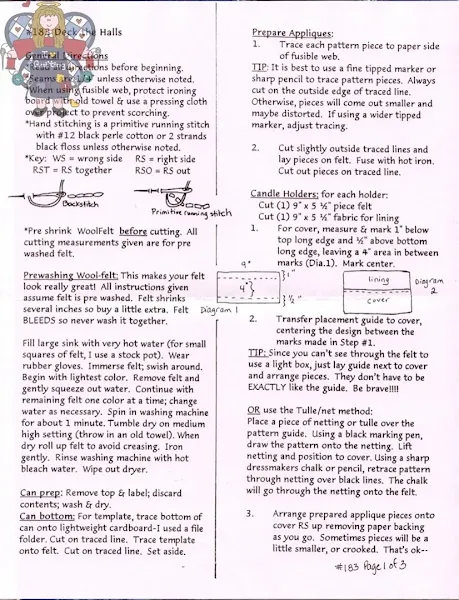 #183 Deck the Halls
General Directions
*Read all directions before beginning.
*Seams are 1/4" unless otherwise noted.
*When using fusible web, protect ironing
board with old towel & use a pressing cloth
over project to prevent scorching.
*Hand stitching is a primitive running stitch
with #12 black perle cotton or 2 strands
black floss unless otherwise noted.
*Key: WS = wrong side RS = right side
RST = RS together RSO = RS out
Backstitch
Primitive running stitch
*Pre shrink WoolFelt before cutting. All
cutting measurements given are for pre
washed felt.
Prewashing Wool-felt: This makes your felt
look really great! All instructions given
assume felt is pre washed. Felt shrinks
several inches so buy a little extra. Felt
BLEEDS so never wash it together.
Fill large sink with very hot water (for small
squares of felt, I use a stock pot). Wear
rubber gloves. Immerse felt; swish around.
Begin with lightest color. Remove felt and
gently squeeze out water. Continue with
remaining felt one color at a time; change
water as necessary. Spin in washing machine
for about 1 minute. Tumble dry on medium
high setting (throw in an old towel). When
dry roll up felt to avoid creasing. Iron
gently. Rinse washing machine with hot
bleach water. Wipe out dryer.
Can prep: Remove top & label; discard
contents; wash & dry.
Can bottom: For template, trace bottom of
can onto lightweight cardboard-I used a file
folder. Cut on traced line. Trace template
onto felt. Cut on traced line. Set aside.
Prepare Appliques:
1. Trace each pattern piece to paper side
of fusible web.
TIP: It is best to use a fine tipped marker or
sharp pencil to trace pattern pieces. Always
cut on the outside edge of traced line.
Otherwise, pieces will come out smaller and
maybe distorted. If using a wider tipped
marker, adjust tracing.
2. Cut slightly outside traced lines and
lay pieces on felt. Fuse with hot iron.
Cut out pieces on traced line.
Candle Holders: for each holder:
Cut (1) 9" x 5 ½" piece felt
Cut (1) 9" x 5 ½" fabric for lining
1. For cover, measure & mark 1" below
top long edge and ½" above bottom
long edge, leaving a 4" area in between
marks (Dia.1). Mark center.
9"
1"
4"
½"
Diagram 1
lining
cover
Diagram
2
2. Transfer placement guide to cover,
centering the design between the
marks made in Step #1.
TIP: Since you can't see through the felt to
use a light box, just lay guide next to cover
and arrange pieces. They don't have to be
EXACTLY like the guide. Be brave!!!!
OR use the Tulle/net method:
Place a piece of netting or tulle over the
pattern guide. Using a black marking pen,
draw the pattern onto the netting. Lift
netting and position to cover. Using a sharp
dressmakers chalk or pencil, retrace pattern
through netting over black lines. The chalk
will go through the netting onto the felt.
3. Arrange prepared applique pieces onto
cover RS up removing paper backing
as you go. Sometimes pieces will be a
little smaller, or crooked. That's ok--
#183 Page 1 of 3